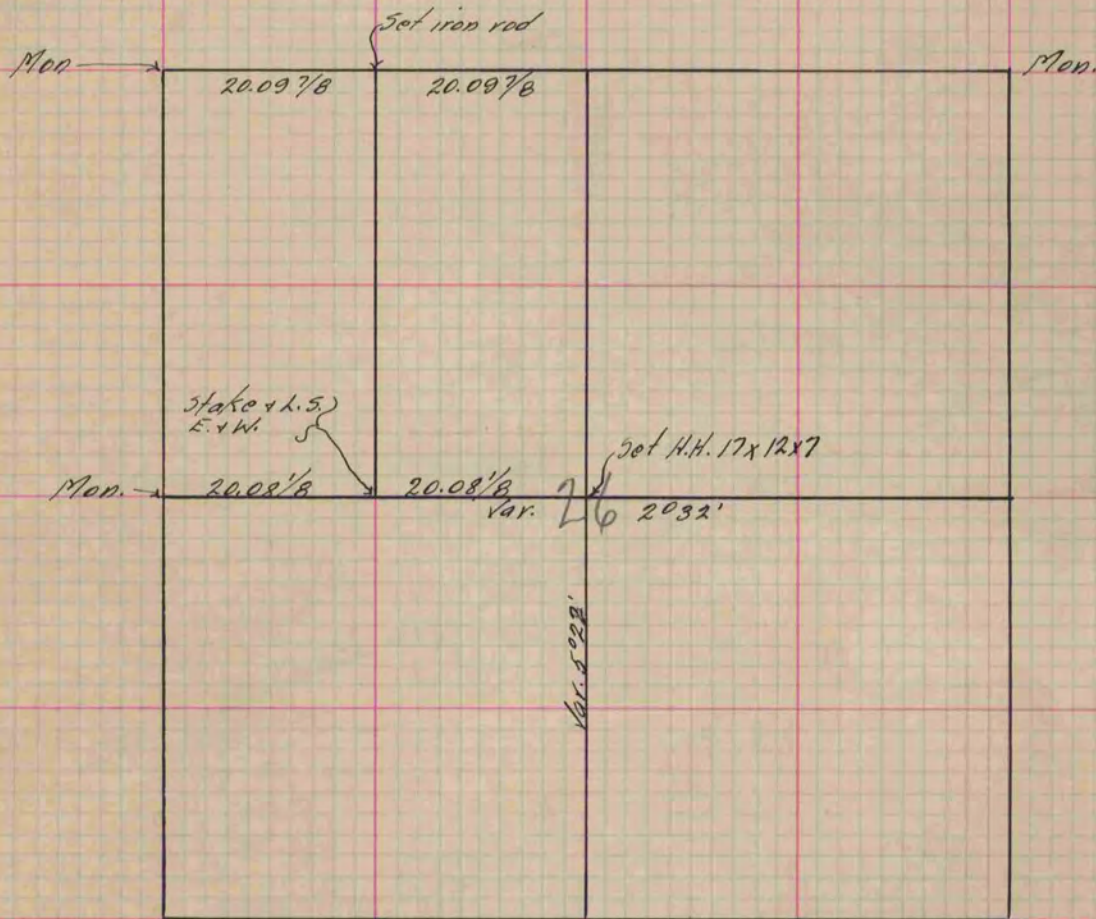 Set iron rod
Mon
Mon.
20.09 7/8
20.09 7/8
Stake & L.S.
E. & W.
Set H.H. 17x12x7
Mon.
20.08 1/8
20.08 1/8
Var.
26
2°32'
Var. 5°28'